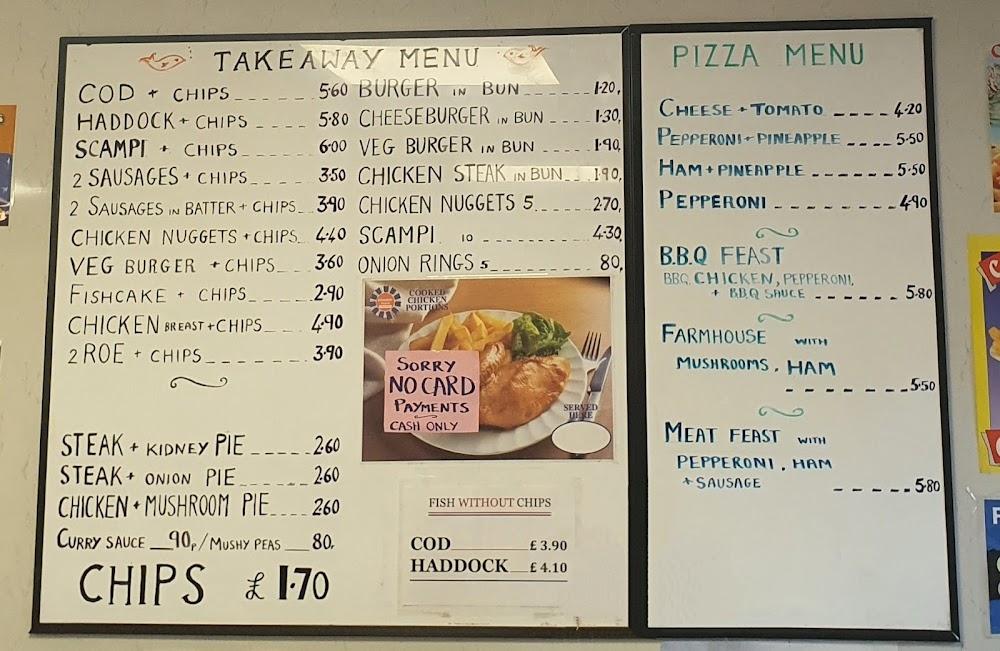 TAKEAWAY MENU
COD + CHIPS 5·60
HADDOCK + CHIPS 5·80
SCAMPI + CHIPS 6·00
2 SAUSAGES + CHIPS 3·50
2 SAUSAGES IN BATTER + CHIPS 3·90
CHICKEN NUGGETS + CHIPS 4·40
VEG BURGER + CHIPS 3·60
FISHCAKE + CHIPS 2·90
CHICKEN BREAST + CHIPS 4·90
2 ROE + CHIPS 3·90
STEAK + KIDNEY PIE 2·60
STEAK + ONION PIE 2·60
CHICKEN + MUSHROOM PIE 2·60
CURRY SAUCE 90p / MUSHY PEAS 80,
CHIPS £ 1·70
BURGER IN BUN 1·20,
CHEESEBURGER IN BUN 1·30,
VEG BURGER IN BUN 1·90,
CHICKEN STEAK IN BUN 1·90,
CHICKEN NUGGETS 5 2·70,
SCAMPI 10 4·30,
ONION RINGS 5 80,
COOKED
CHICKEN
PORTIONS
SORRY
NO CARD
PAYMENTS
CASH ONLY
SERVED
HERE
FISH WITHOUT CHIPS
COD £ 3.90
HADDOCK £ 4.10
PIZZA MENU
CHEESE + TOMATO 4·20
PEPPERONI + PINEAPPLE 5·50
HAM + PINEAPPLE 5·50
PEPPERONI 4·90
B.B.Q FEAST
BBQ CHICKEN, PEPPERONI,
+ BBQ SAUCE 5·80
FARMHOUSE WITH
MUSHROOMS, HAM
5·50
MEAT FEAST WITH
PEPPERONI, HAM
+ SAUSAGE 5·80